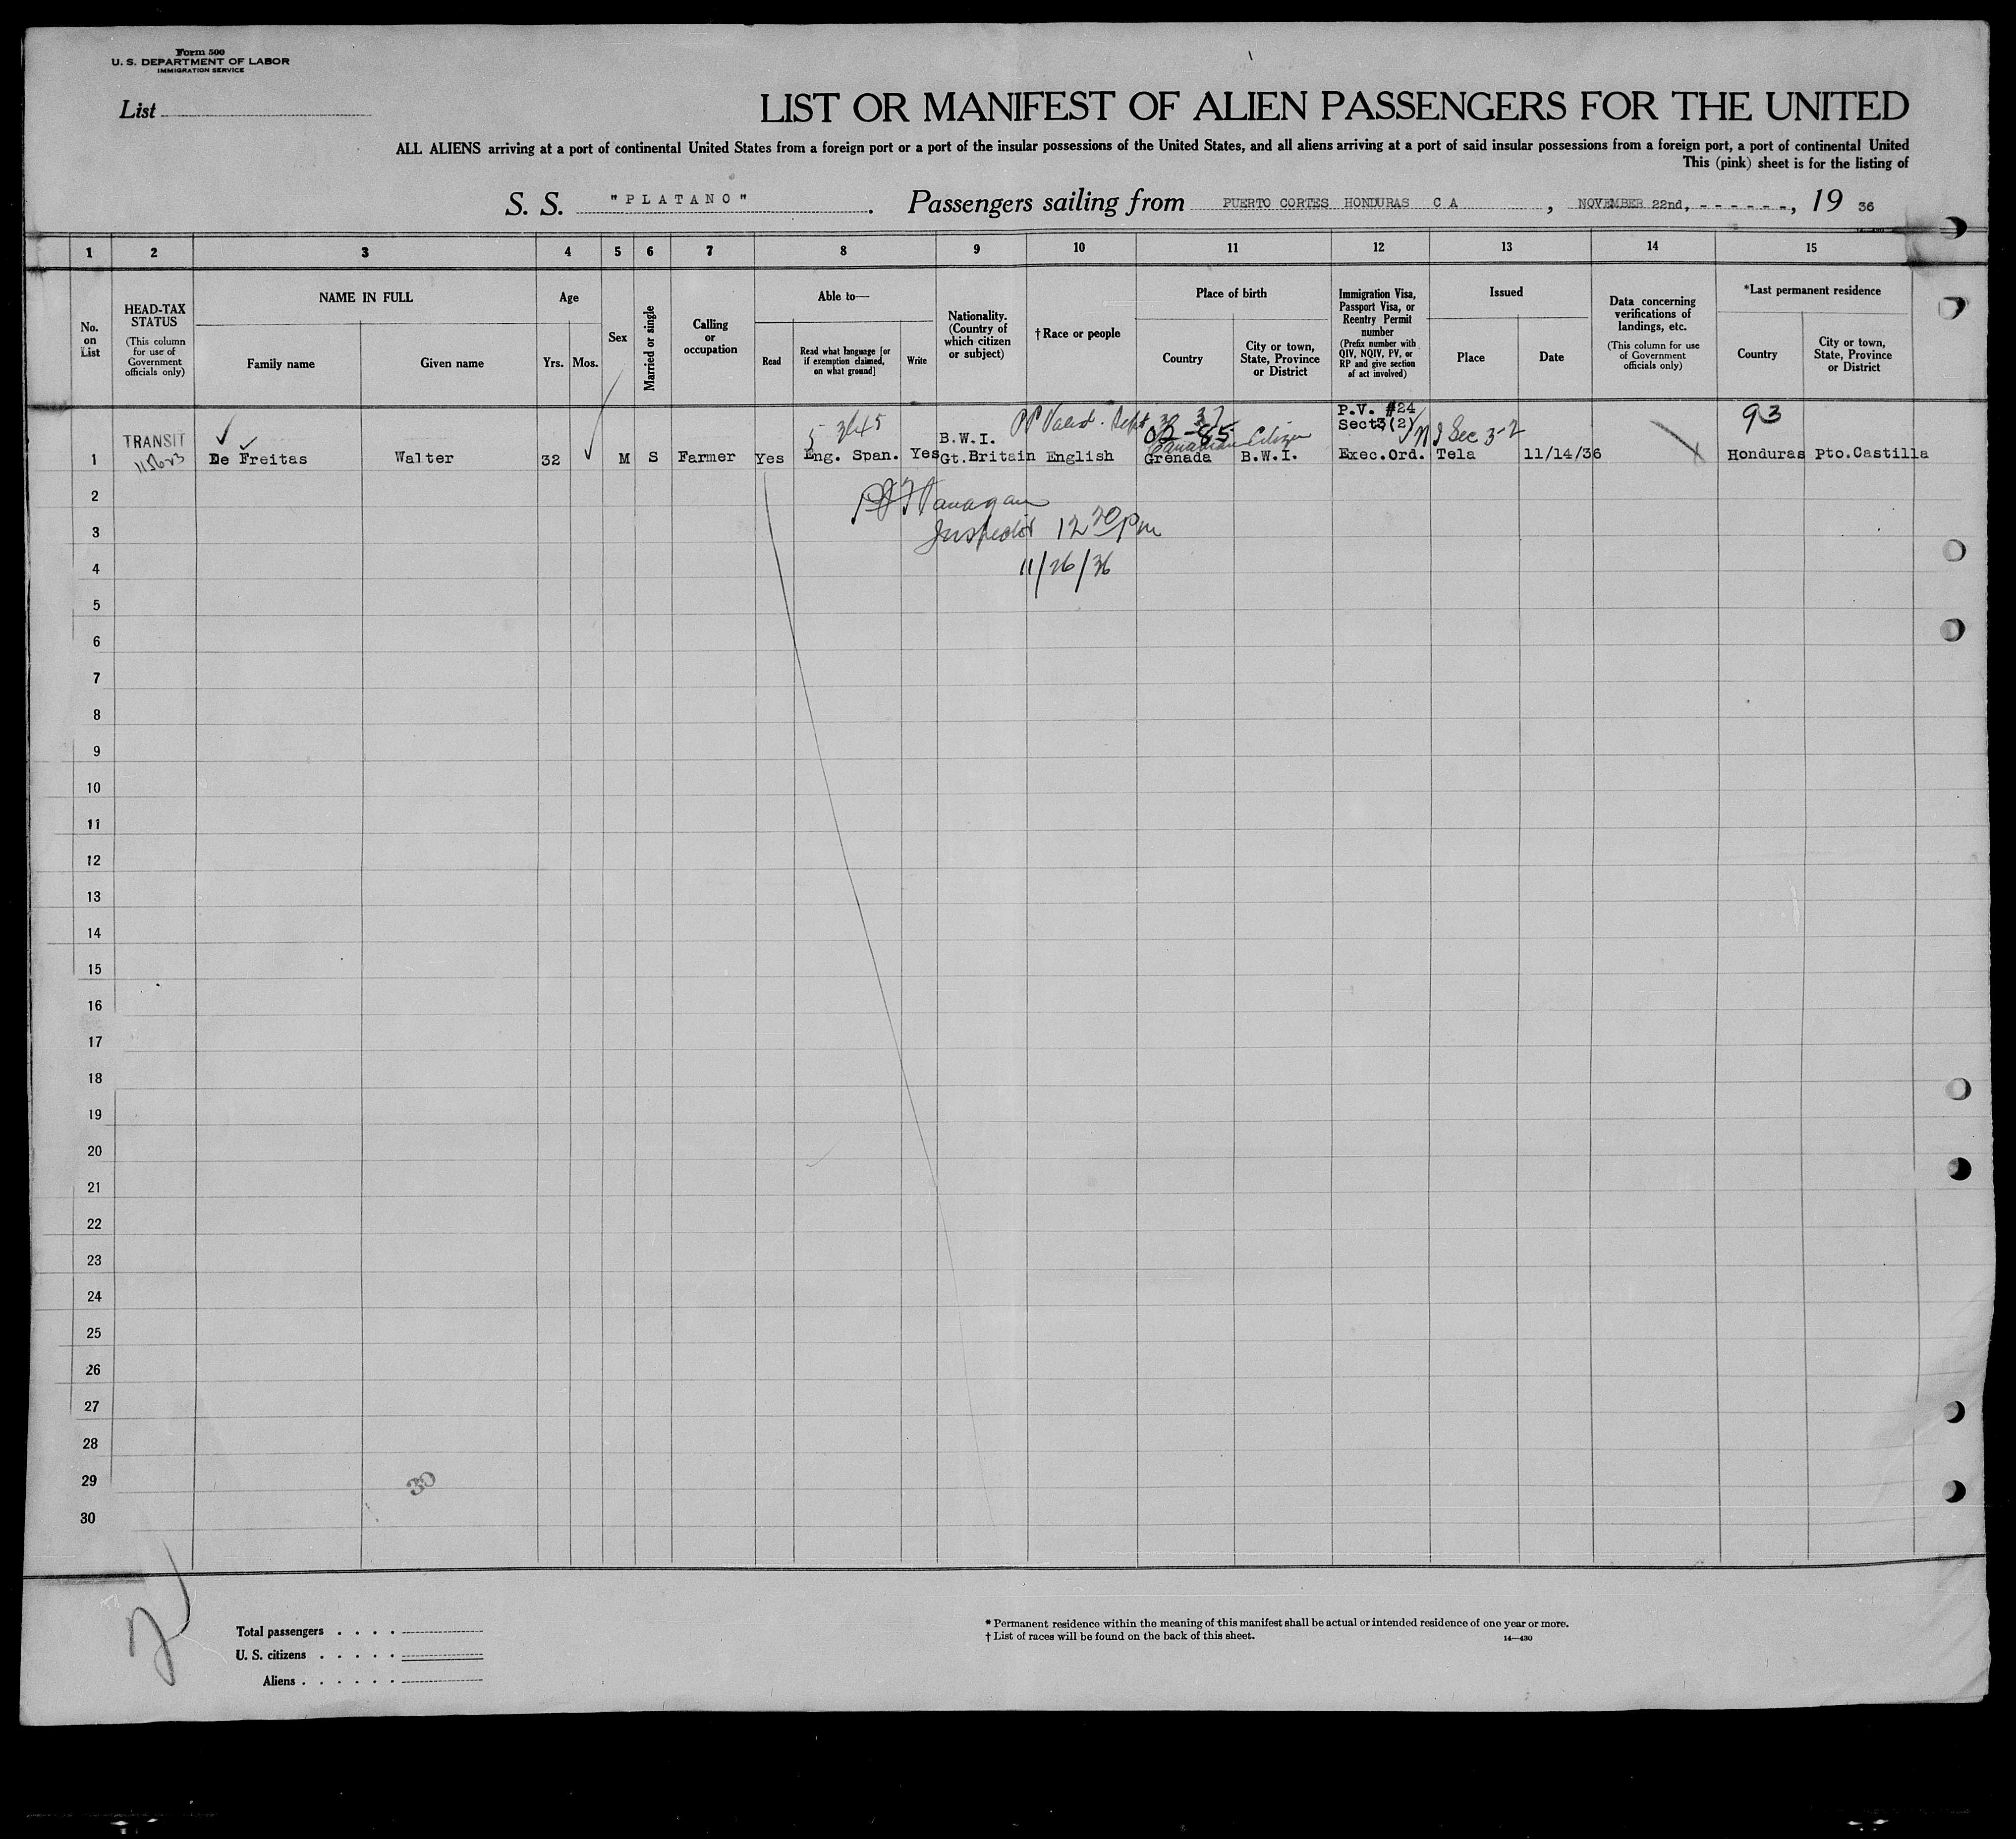 Form 500
U. S. DEPARTMENT OF LABOR
IMMIGRATION SERVICE
List
LIST OR MANIFEST OF ALIEN PASSENGERS FOR THE UNITED
ALL ALIENS arriving at a port of continental United States from a foreign port or a port of the insular possessions of the United States, and all aliens arriving at a port of said insular possessions from a foreign port, a port of continental United
This (pink) sheet is for the listing of
S. S. "PLATANO". Passengers sailing from PUERTO CORTES HONDURAS C A, NOVEMBER 22nd, - - - - - -, 19 36
1 2 3 4 5 6 7 8 9 10 11 12 13 14 15
No. on List
HEAD-TAX STATUS (This column for use of Government officials only)
NAME IN FULL
Family name
Given name
Age
Yrs.
Mos.
Sex
Married or single
Calling or occupation
Able to—
Read
Read what language [or if exemption claimed, on what ground]
Write
Nationality. (Country of which citizen or subject)
†Race or people
Place of birth
Country
City or town, State, Province or District
Immigration Visa, Passport Visa, or Reentry Permit number (Prefix number with QIV, NQIV, PV, or RP and give section of act involved)
Issued
Place
Date
Data concerning verifications of landings, etc. (This column for use of Government officials only)
*Last permanent residence
Country
City or town, State, Province or District
P.V. #24
93
TRANSIT
B.W.I.
PP Valid. Sept 30 37
Sect3(2)
Canadian Citizen
1 De Freitas Walter 32 M S Farmer Yes Eng. Span. Yes Gt.Britain English Grenada B.W.I. Exec.Ord. Tela 11/14/36 Honduras Pto.Castilla
2
Inspector 12 20 pm
3
11/26/36
4
5
6
7
8
9
10
11
12
13
14
15
16
17
18
19
20
21
22
23
24
25
26
27
28
29
30
30
2
Total passengers . . . .
U. S. citizens . . . . .
Aliens . . . . . .
* Permanent residence within the meaning of this manifest shall be actual or intended residence of one year or more.
† List of races will be found on the back of this sheet.
14—430